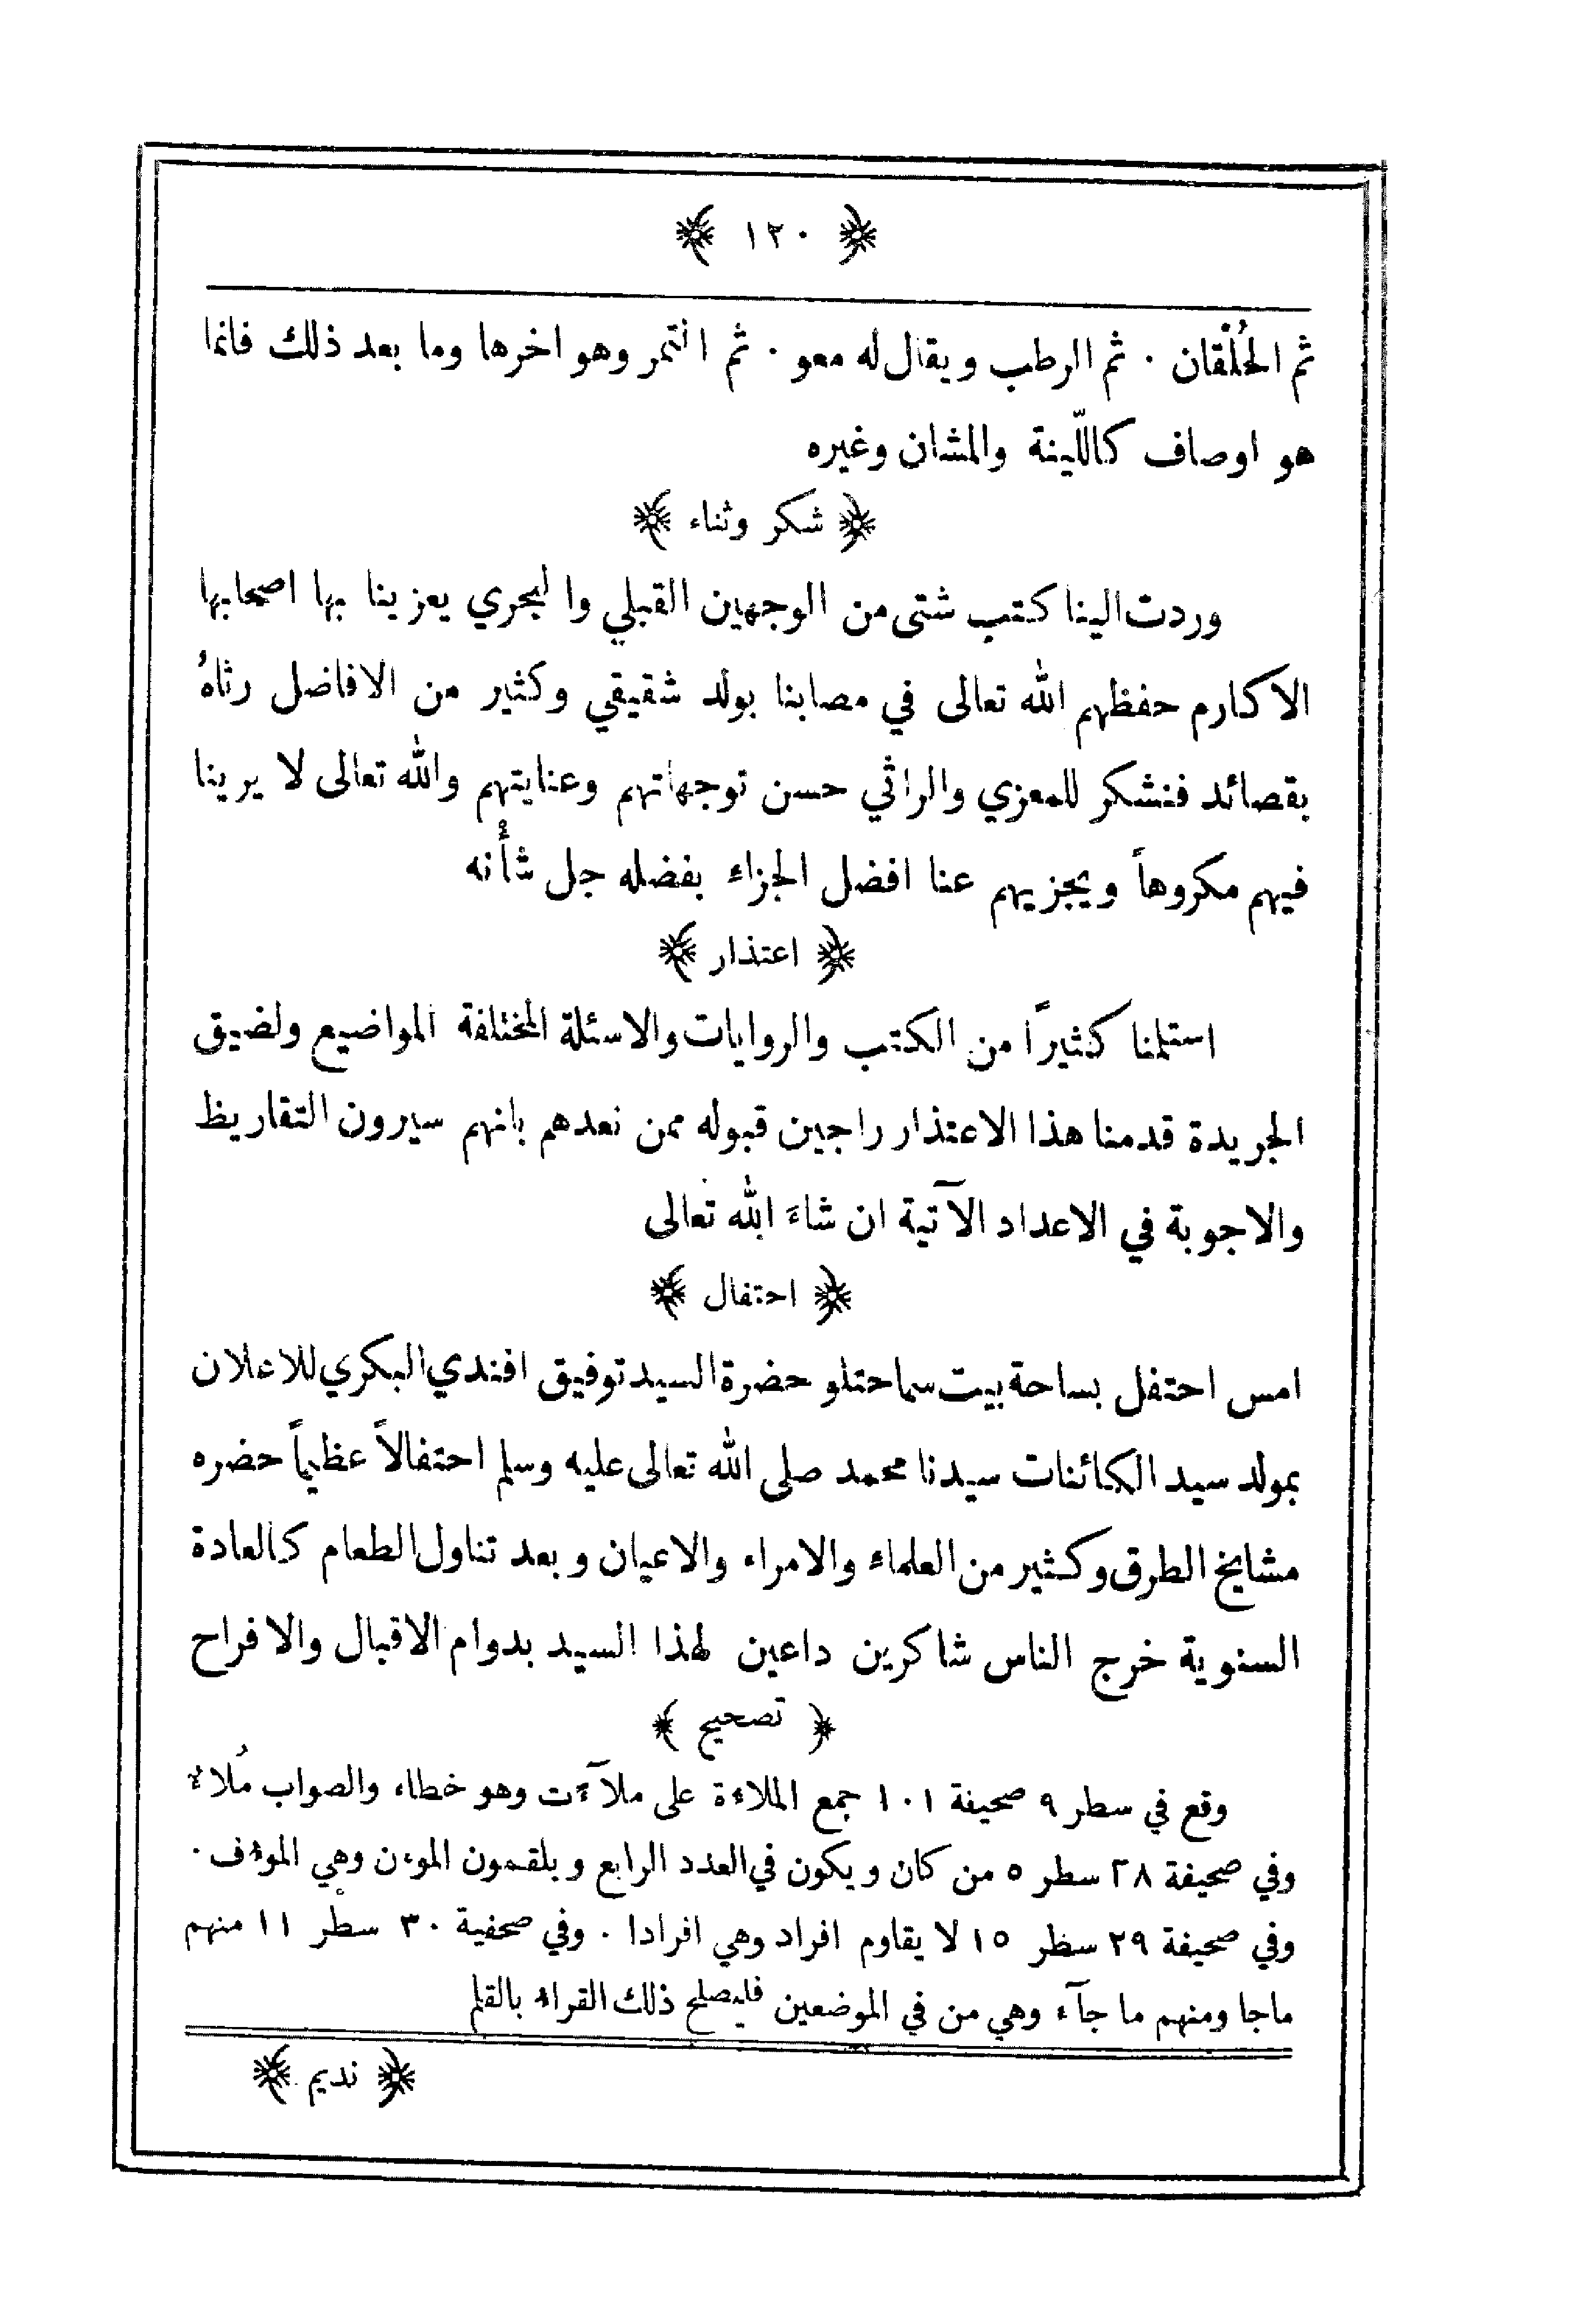 ﴿ ١٢٠ ﴾
ثم الحُلْقان ٠ ثم الرطب ويقال له معو ٠ ثم التمر وهو اخرها وما بعد ذلك فانما
هو اوصاف كاللّينة والمشان وغيره
﴿ شكر وثناء ﴾
وردت الينا كتب شتى من الوجهين القبلي والبحري يعزينا بها اصحابها
الاكارم حفظهم الله تعالى في مصابنا بولد شقيقي وكثير من الافاضل رثاهُ
بقصائد فنشكر للمعزي والراثي حسن توجهاتهم وعنايتهم والله تعالى لا يرينا
فيهم مكروهاً ويجزيهم عنا افضل الجزاء بفضله جل شأنه
﴿ اعتذار ﴾
استلمنا كثيرًا من الكتب والروايات والاسئلة المختلفة المواضيع ولضيق
الجريدة قدمنا هذا الاعتذار راجين قبوله ممن نعدهم بانهم سيرون التقاريظ
والاجوبة في الاعداد الآتية ان شاءَ الله تعالى
﴿ احتفال ﴾
امس احتفل بساحة بيت سماحتلو حضرة السيد توفيق افندي البكري للاعلان
بمولد سيد الكائنات سيدنا محمد صلى الله تعالى عليه وسلم احتفالاً عظيماً حضره
مشايخ الطرق وكثير من العلماء والامراء والاعيان وبعد تناول الطعام كالعادة
السنوية خرج الناس شاكرين داعين لهذا السيد بدوام الاقبال والافراح
﴿ تصحيح ﴾
وقع في سطر ٩ صحيفة ١٠١ جمع الملاءة على ملآءت وهو خطاء والصواب مُلاء
وفي صحيفة ٢٨ سطر ٥ من كان ويكون في العدد الرابع ويلقمون الموءن وهي الموءف ٠
وفي صحيفة ٢٩ سظر ١٥ لا يقاوم افراد وهي افرادا ٠ وفي صحفية ٣٠ سطر ١١ منهم
ماجا ومنهم ما جآء وهي من في الموضعين فليصلح ذلك القراء بالقلم
﴿ نديم ﴾